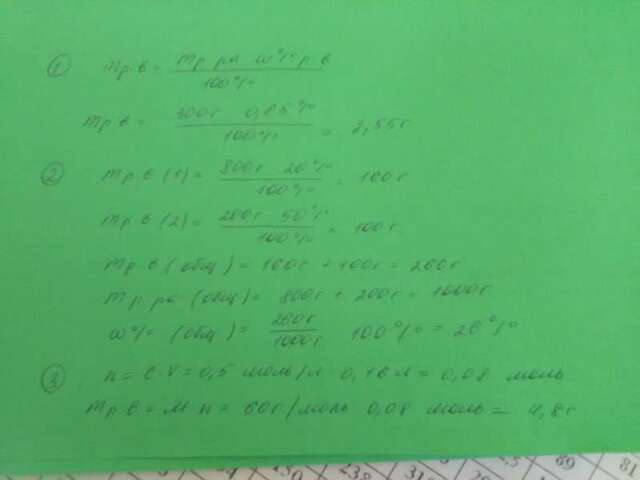 ① mр.в = mр-ра · ω%р.в / 100%
mр.в = 300г · 0,85% / 100% = 2,55г
② mр.в (1) = 800г · 20% / 100% = 160г
mр.в (2) = 200г · 50% / 100% = 100г
mр.в (общ) = 160г + 100г = 260г
mр-ра (общ) = 800г + 200г = 1000г
ω% (общ) = 260г / 1000г · 100% = 26%
③ n = C·V = 0,5 моль/л · 0,16 л = 0,08 моль
mр.в = M·n = 60г/моль · 0,08 моль = 4,8г
89 81
230 238 31